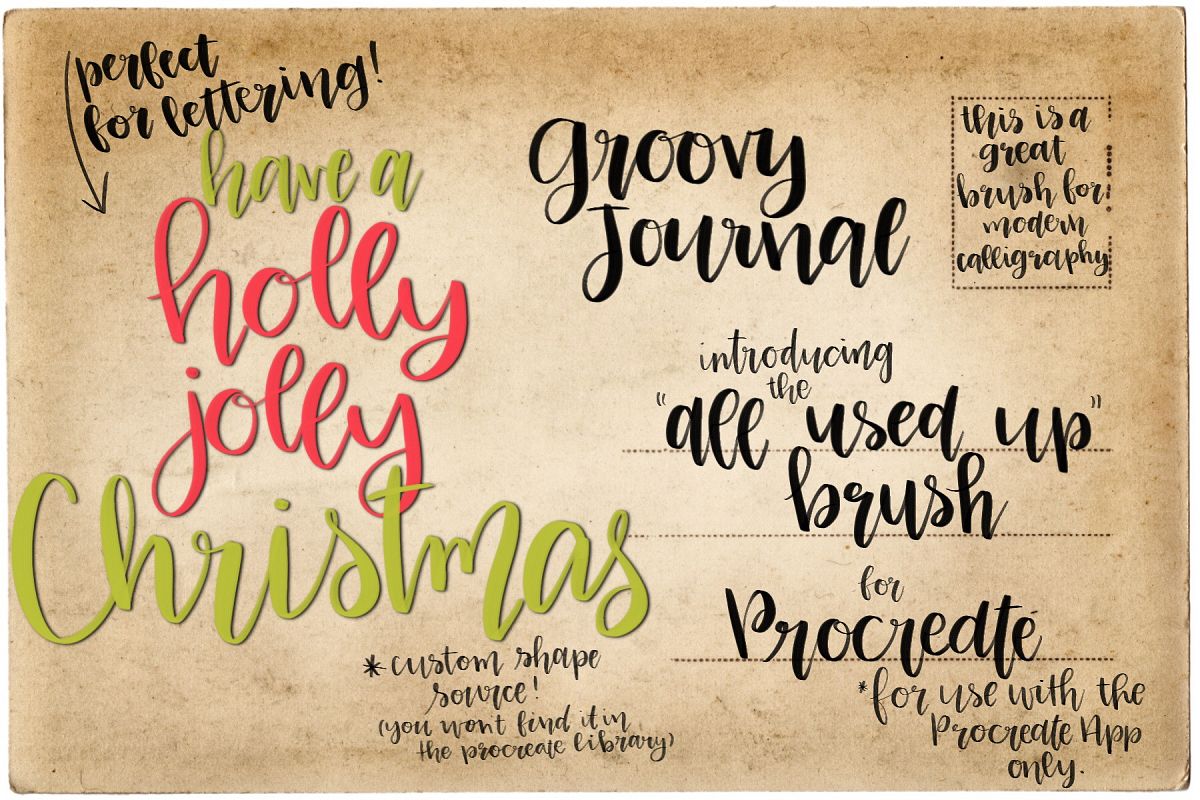 perfect
for lettering!
have a
holly
jolly
Christmas
*custom shape
source!
(you won't find it in
the procreate library)
Groovy
Journal
this is a
great
brush for
modern
calligraphy
introducing
the
"all used up"
brush
for
Procreate
*for use with the
Procreate App
only.